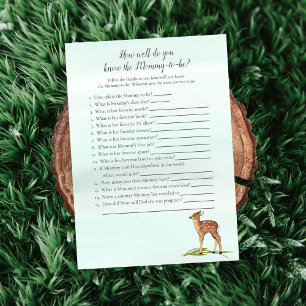 How well do you
know the Mommy-to-be?
Fill in the blanks to see how well you know
the Mommy-to-be. Whoever gets the most correct wins!
1. How old is the Mommy to be?
2. What is Mommy's shoe size?
3. What is her favorite movie?
4. What is her favorite book?
5. What is her favorite TV show?
6. What is her favorite
7. What is her favorite dessert?
8. What is her favorite restaurant?
9. What is her favorite
10. What is her favorite sport?
11. Who is her favorite band or solo artist?
12. If Mommy could live anywhere in the world,
where would it be?
13. How many pets does Mommy have?
14. What is Mommy's current favorite snack food?
15. Name a country Mommy has traveled to
16. How did Mom tell Dad she was pregnant?